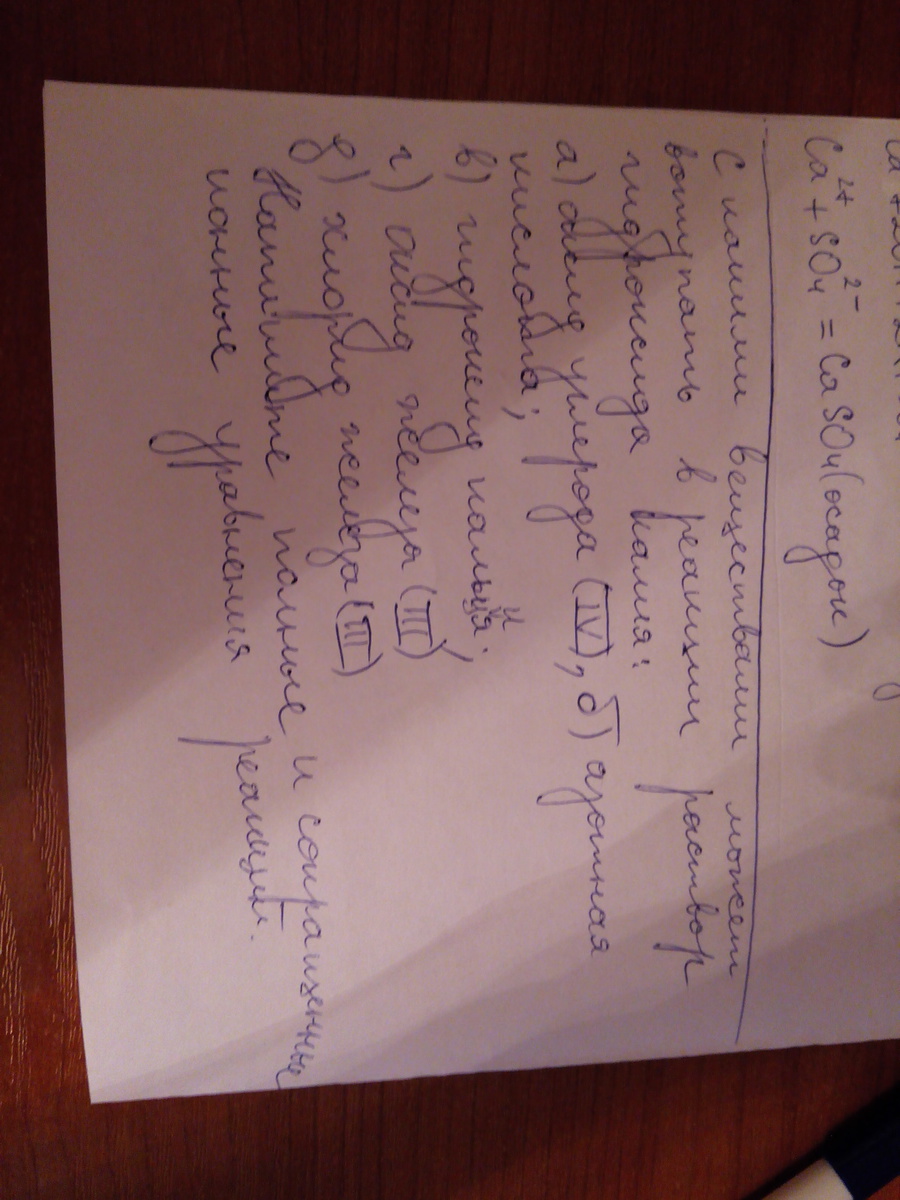 Ca²⁺ + SO₄²⁻ = CaSO₄ (осадок)
С какими веществами может
вступать в реакции раствор
гидроксида калия:
а) оксид углерода (IV), б) азотная
кислота;
в) гидроксид кальция;
г) оксид железа (III)
д) хлорид железа (III)
Напишите полные и сокращенные
ионные уравнения реакции.